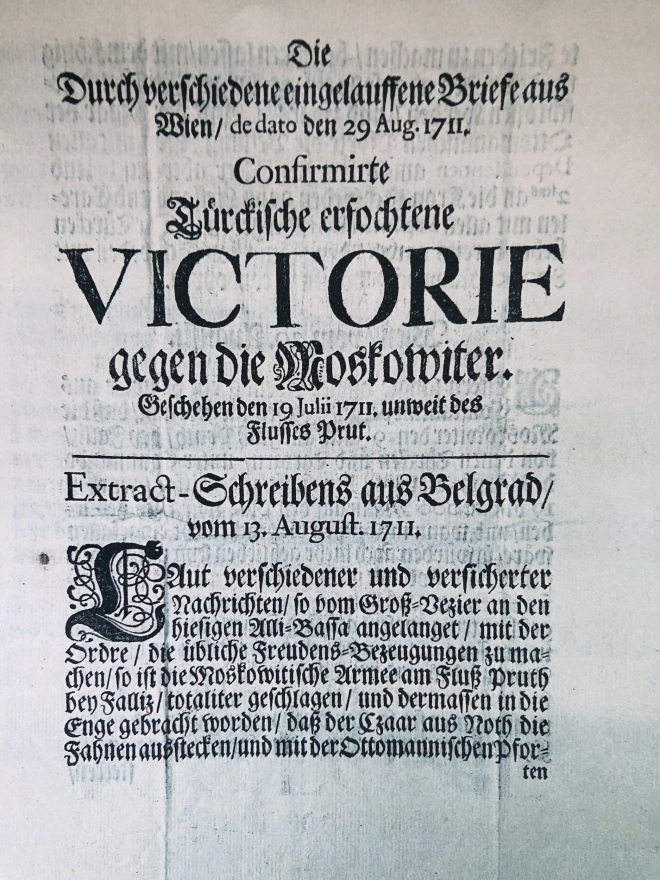 Die
Durch verschiedene eingelauffene Briefe aus
Wien / de dato den 29 Aug. 1711.
Confirmirte
Türckische erfochtene
VICTORIE
gegen die Moskowiter.
Geschehen den 19 Julii 1711. unweit des
Flusses Prut.
Extract-Schreibens aus Belgrad /
vom 13. August. 1711.
LAut verschiedener und versicherter
Nachrichten / so vom Groß-Vezier an den
hiesigen Alli-Bassa angelanget / mit der
Ordre / die übliche Freudens-Bezeugungen zu ma-
chen / so ist die Moskowitische Armee am Fluß Pruth
bey Falliz / totaliter geschlagen / und dermassen in die
Enge gebracht worden / daß der Czaar aus Noth die
Fahnen ausstecken / und mit der Ottomannischen Pfor-
ten